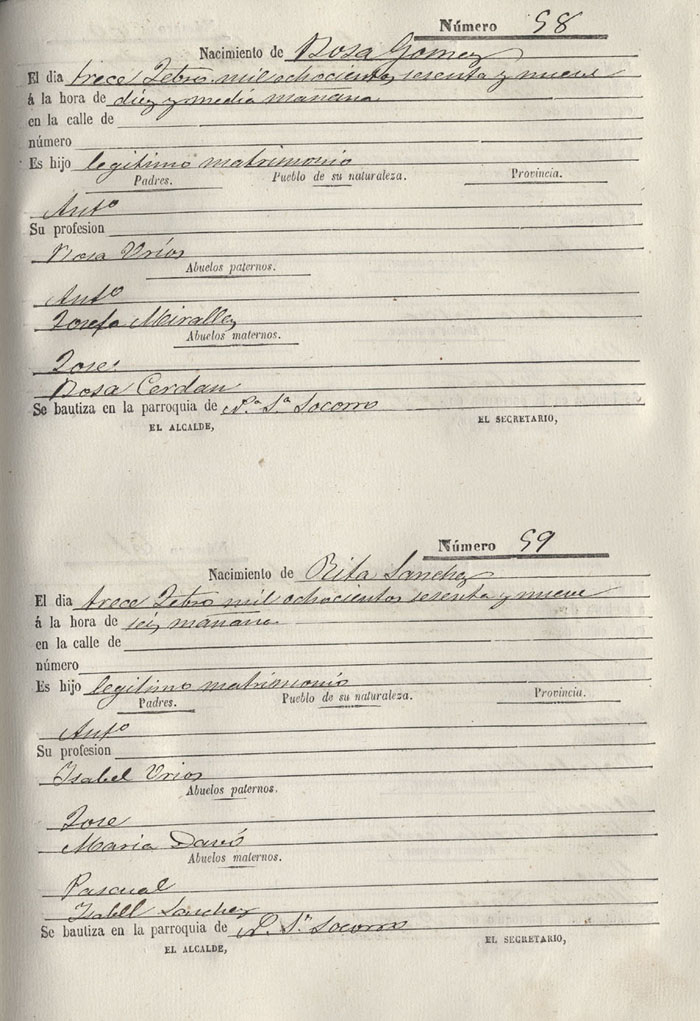 Número 58
Nacimiento de Rosa Gomez
El dia trece Febro. mil ochocientos sesenta y nueve
á la hora de diez y media mañana
en la calle de
número
Es hijo legitimo matrimonio
Padres. Pueblo de su naturaleza. Provincia.
Anto
Su profesion
Rosa Urios
Abuelos paternos.
Anto
Josefa Miralles
Abuelos maternos.
Jose
Rosa Cerdan
Se bautiza en la parroquia de N.a S.a Socorro
EL ALCALDE, EL SECRETARIO,
Número 59
Nacimiento de Rita Sanchez
El dia trece Febro mil ochocientos sesenta y nueve
á la hora de seis mañana
en la calle de
número
Es hijo legitimo matrimonio
Padres. Pueblo de su naturaleza. Provincia.
Anto
Su profesion
Isabel Urios
Abuelos paternos.
Jose
Maria Davó
Abuelos maternos.
Pascual
Isabell Sanchez
Se bautiza en la parroquia de N. S.a Socorro
EL ALCALDE, EL SECRETARIO,